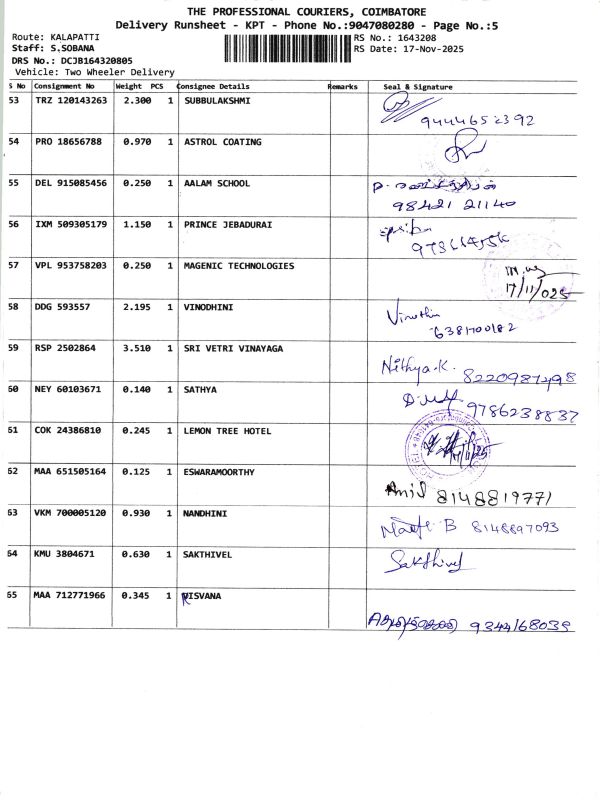 THE PROFESSIONAL COURIERS, COIMBATORE
Delivery Runsheet - KPT - Phone No.:9047080280 - Page No.:5
Route: KALAPATTI
RS No.: 1643208
Staff: S.SOBANA
RS Date: 17-Nov-2025
DRS No.: DCJB164320805
Vehicle: Two Wheeler Delivery
S No Consignment No Weight PCS Consignee Details Remarks Seal & Signature
53 TRZ 120143263 2.300 1 SUBBULAKSHMI
9444652392
54 PRO 18656788 0.970 1 ASTROL COATING
55 DEL 915085456 0.250 1 AALAM SCHOOL
98421 21140
56 IXM 509305179 1.150 1 PRINCE JEBADURAI
57 VPL 953758203 0.250 1 MAGENIC TECHNOLOGIES
17/11/025
58 DDG 593557 2.195 1 VINODHINI
Vinothin
6381700182
59 RSP 2502864 3.510 1 SRI VETRI VINAYAGA
Nithya.K. 8220987498
60 NEY 60103671 0.140 1 SATHYA
9786238837
61 COK 24386810 0.245 1 LEMON TREE HOTEL
62 MAA 651505164 0.125 1 ESWARAMOORTHY
8148819771
63 VKM 700005120 0.930 1 NANDHINI
B 8148897093
64 KMU 3804671 0.630 1 SAKTHIVEL
Sakthivel
65 MAA 712771966 0.345 1 RISVANA
9344168039